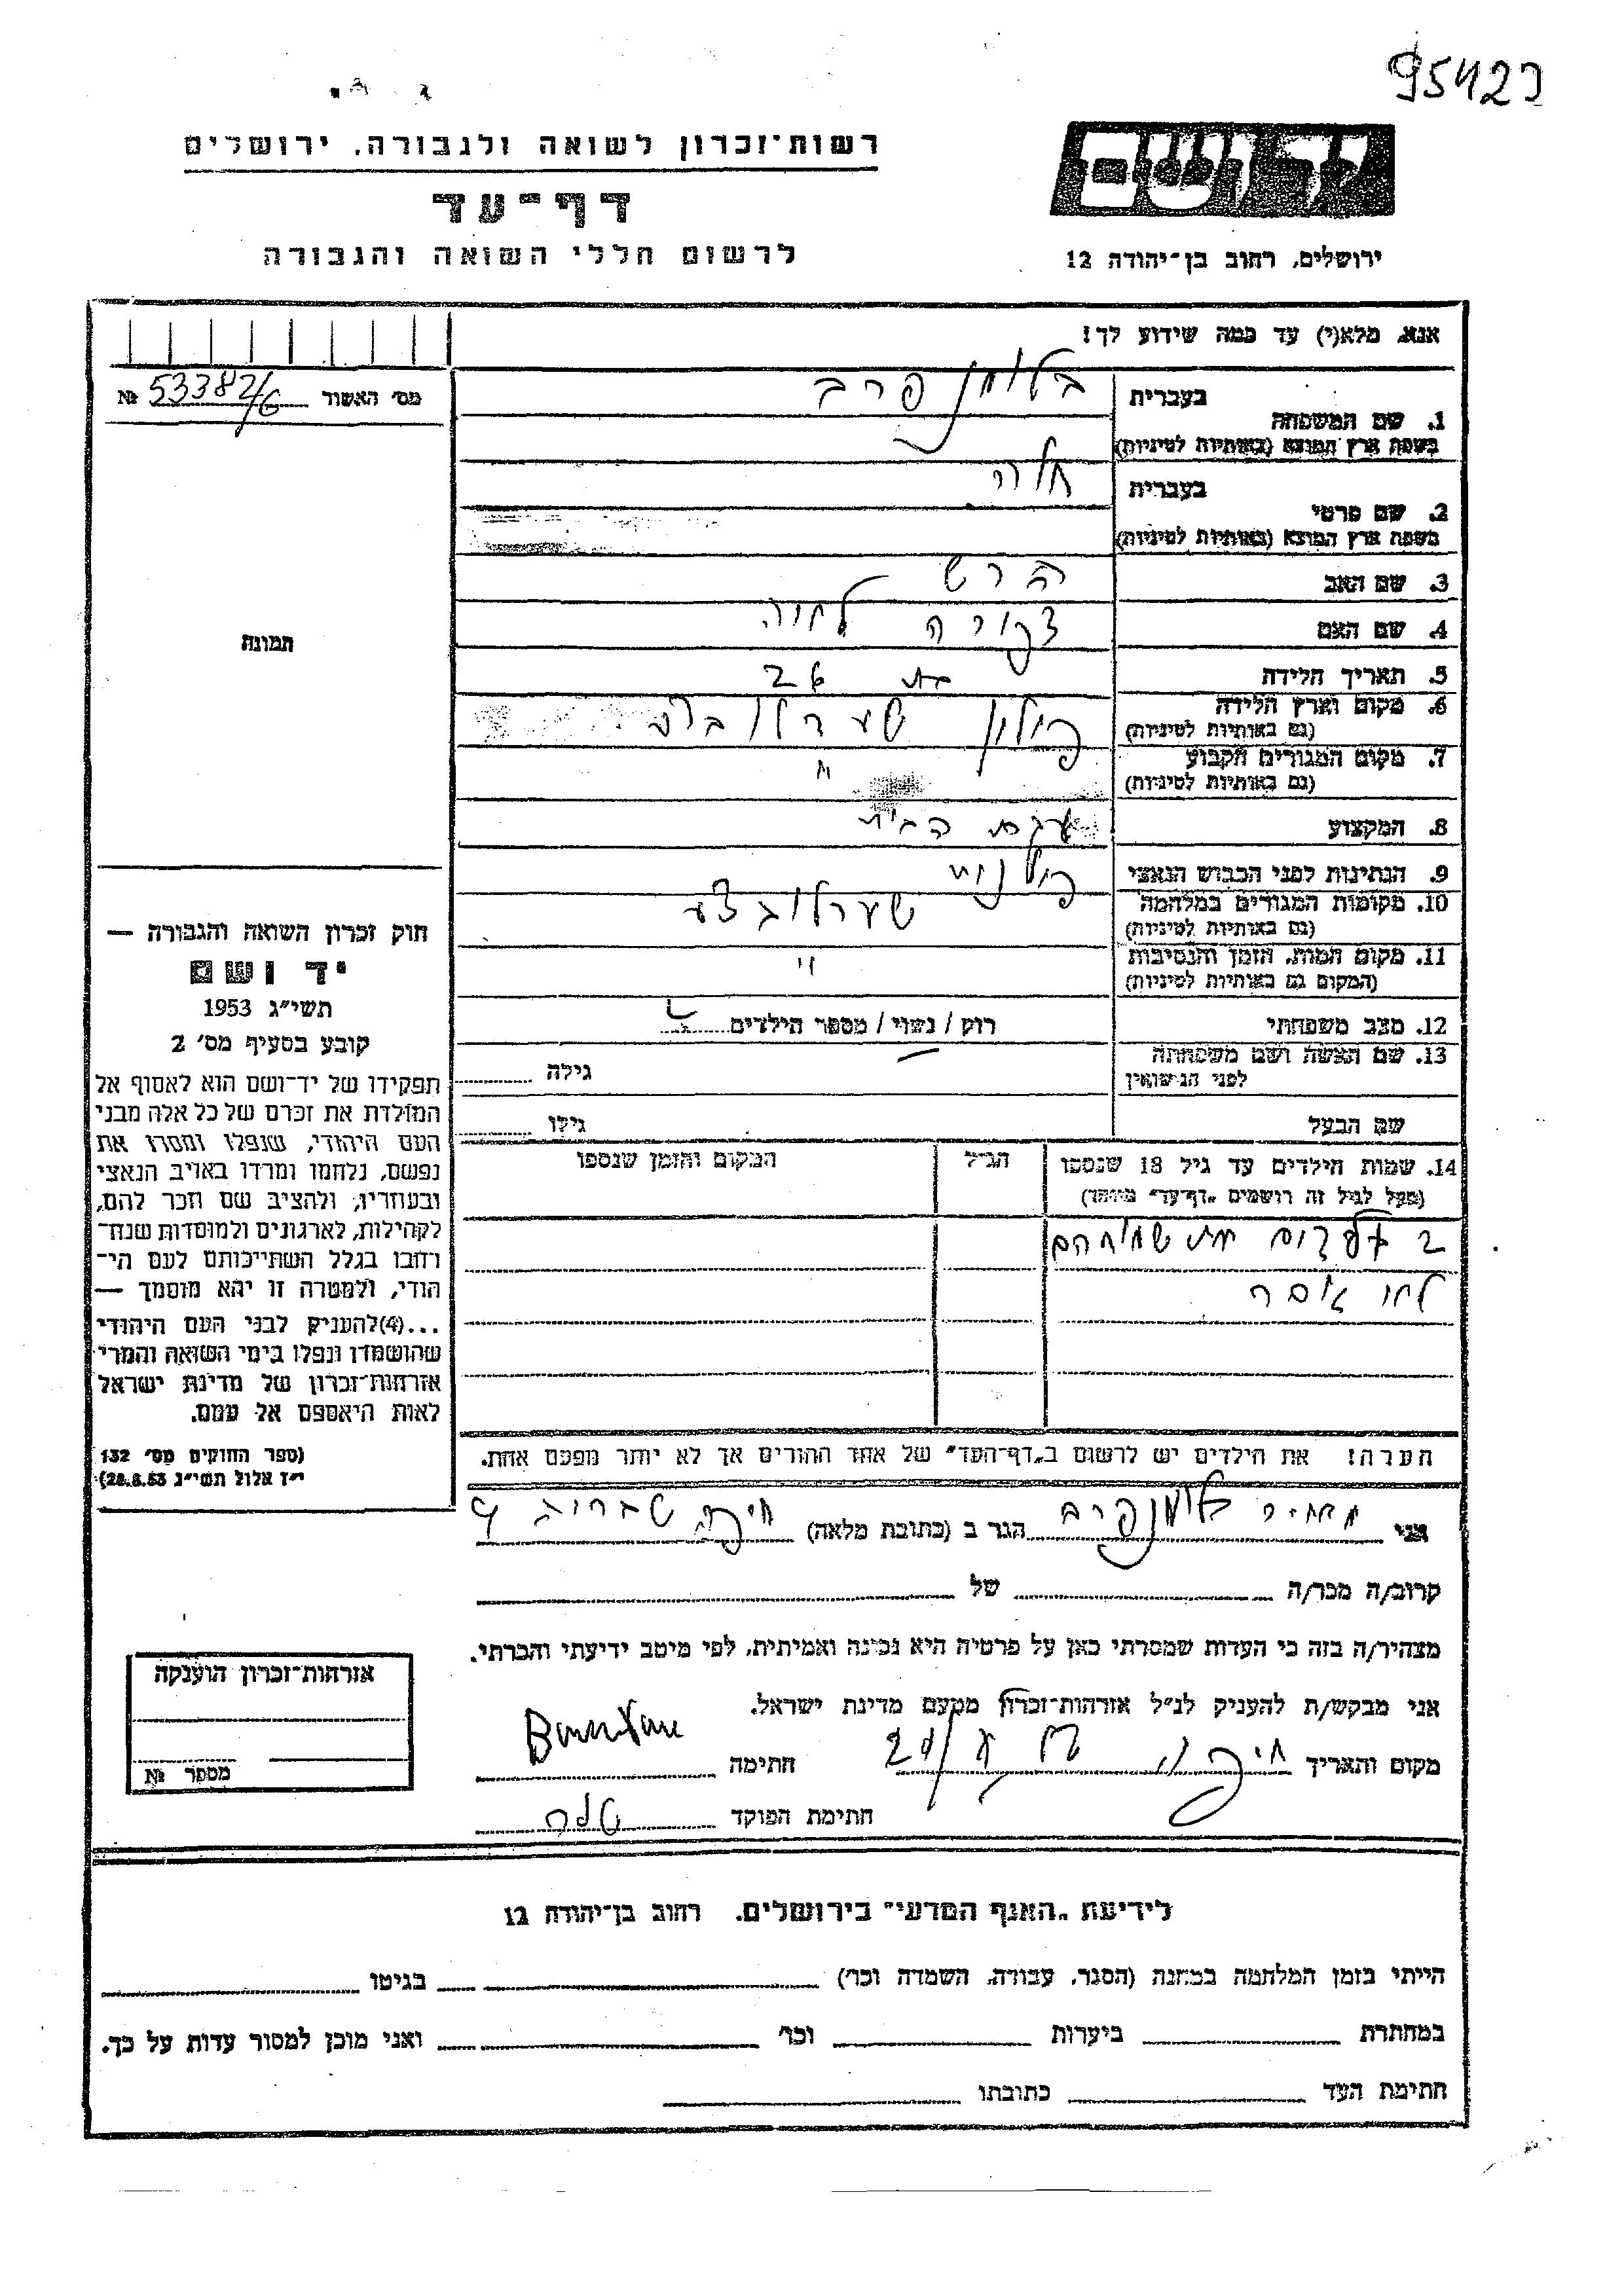 95423
רשות־זכרון לשואה ולגבורה, ירושלים
דף־עד
לרשום חללי השואה והגבורה
ירושלים, רחוב בן־יהודה 12
אנא, מלא(י) עד כמה שידוע לך!
מס׳ האשור 53382/6 №
1. שם המשפחה
בעברית
בשפת ארץ המוצא (באותיות לטיניות)
2. שם פרטי
בעברית חוה
בשפת ארץ המוצא (באותיות לטיניות)
3. שם האב הרש
4. שם האם צפורה לחוה
5. תאריך הלידה בת 26
6. מקום וארץ הלידה פולין
(גם באותיות לטיניות)
7. מקום המגורים הקבוע "
(גם באותיות לטיניות)
8. המקצוע עקרת הבית
9. הנתינות לפני הכבוש הנאצי פולנית
10. מקומות המגורים במלחמה
(גם באותיות לטיניות)
11. מקום המות, הזמן והנסיבות "
(המקום גם באותיות לטיניות)
12. מצב משפחתי רוק / נשוי / מספר הילדים
13. שם האשה ושם משפחתה גילה
לפני הנישואין
שם הבעל גילו
14. שמות הילדים עד גיל 18 שנספו הגיל המקום והזמן שנספו
(מעל לגיל זה רושמים „דף־עד״ מיוחד)
2 ילדים
הערה! את הילדים יש לרשום ב„דף־העד״ של אחד ההורים אך לא יותר מפעם אחת.
תמונה
חוק זכרון השואה והגבורה —
יד ושם
תשי״ג 1953
קובע בסעיף מס׳ 2
תפקידו של יד־ושם הוא לאסוף אל
המולדת את זכרם של כל אלה מבני
העם היהודי, שנפלו ומסרו את
נפשם, נלחמו ומרדו באויב הנאצי
ובעוזריו, ולהציב שם וזכר להם,
לקהילות, לארגונים ולמוסדות שנח־
רבו בגלל השתייכותם לעם הי־
הודי, ולמטרה זו יהא מוסמך —
...(4)להעניק לבני העם היהודי
שהושמדו ונפלו בימי השואה והמרי
אזרחות־זכרון של מדינת ישראל
לאות היאספם אל עמם.
(ספר החוקים מס׳ 132
י״ז אלול תשי״ג 28.8.53)
אני מאיר בלומנפרב הגר ב (כתובת מלאה) חיפה 4
קרוב/ה מכר/ה של
מצהיר/ה בזה כי העדות שמסרתי כאן על פרטיה היא נכונה ואמיתית, לפי מיטב ידיעתי והכרתי.
אני מבקש/ת להעניק לנ״ל אזרחות־זכרון מטעם מדינת ישראל.
מקום ותאריך חיפה חתימה
חתימת הפוקד
אזרחות־זכרון הוענקה
מספר №
לידיעת „האגף המדעי״ בירושלים. רחוב בן־יהודה 12
הייתי בזמן המלחמה במחנה (הסגר, עבודה, השמדה וכו׳) בגיטו
במחתרת ביערות וכו׳ ואני מוכן למסור עדות על כך.
חתימת העד כתובתו